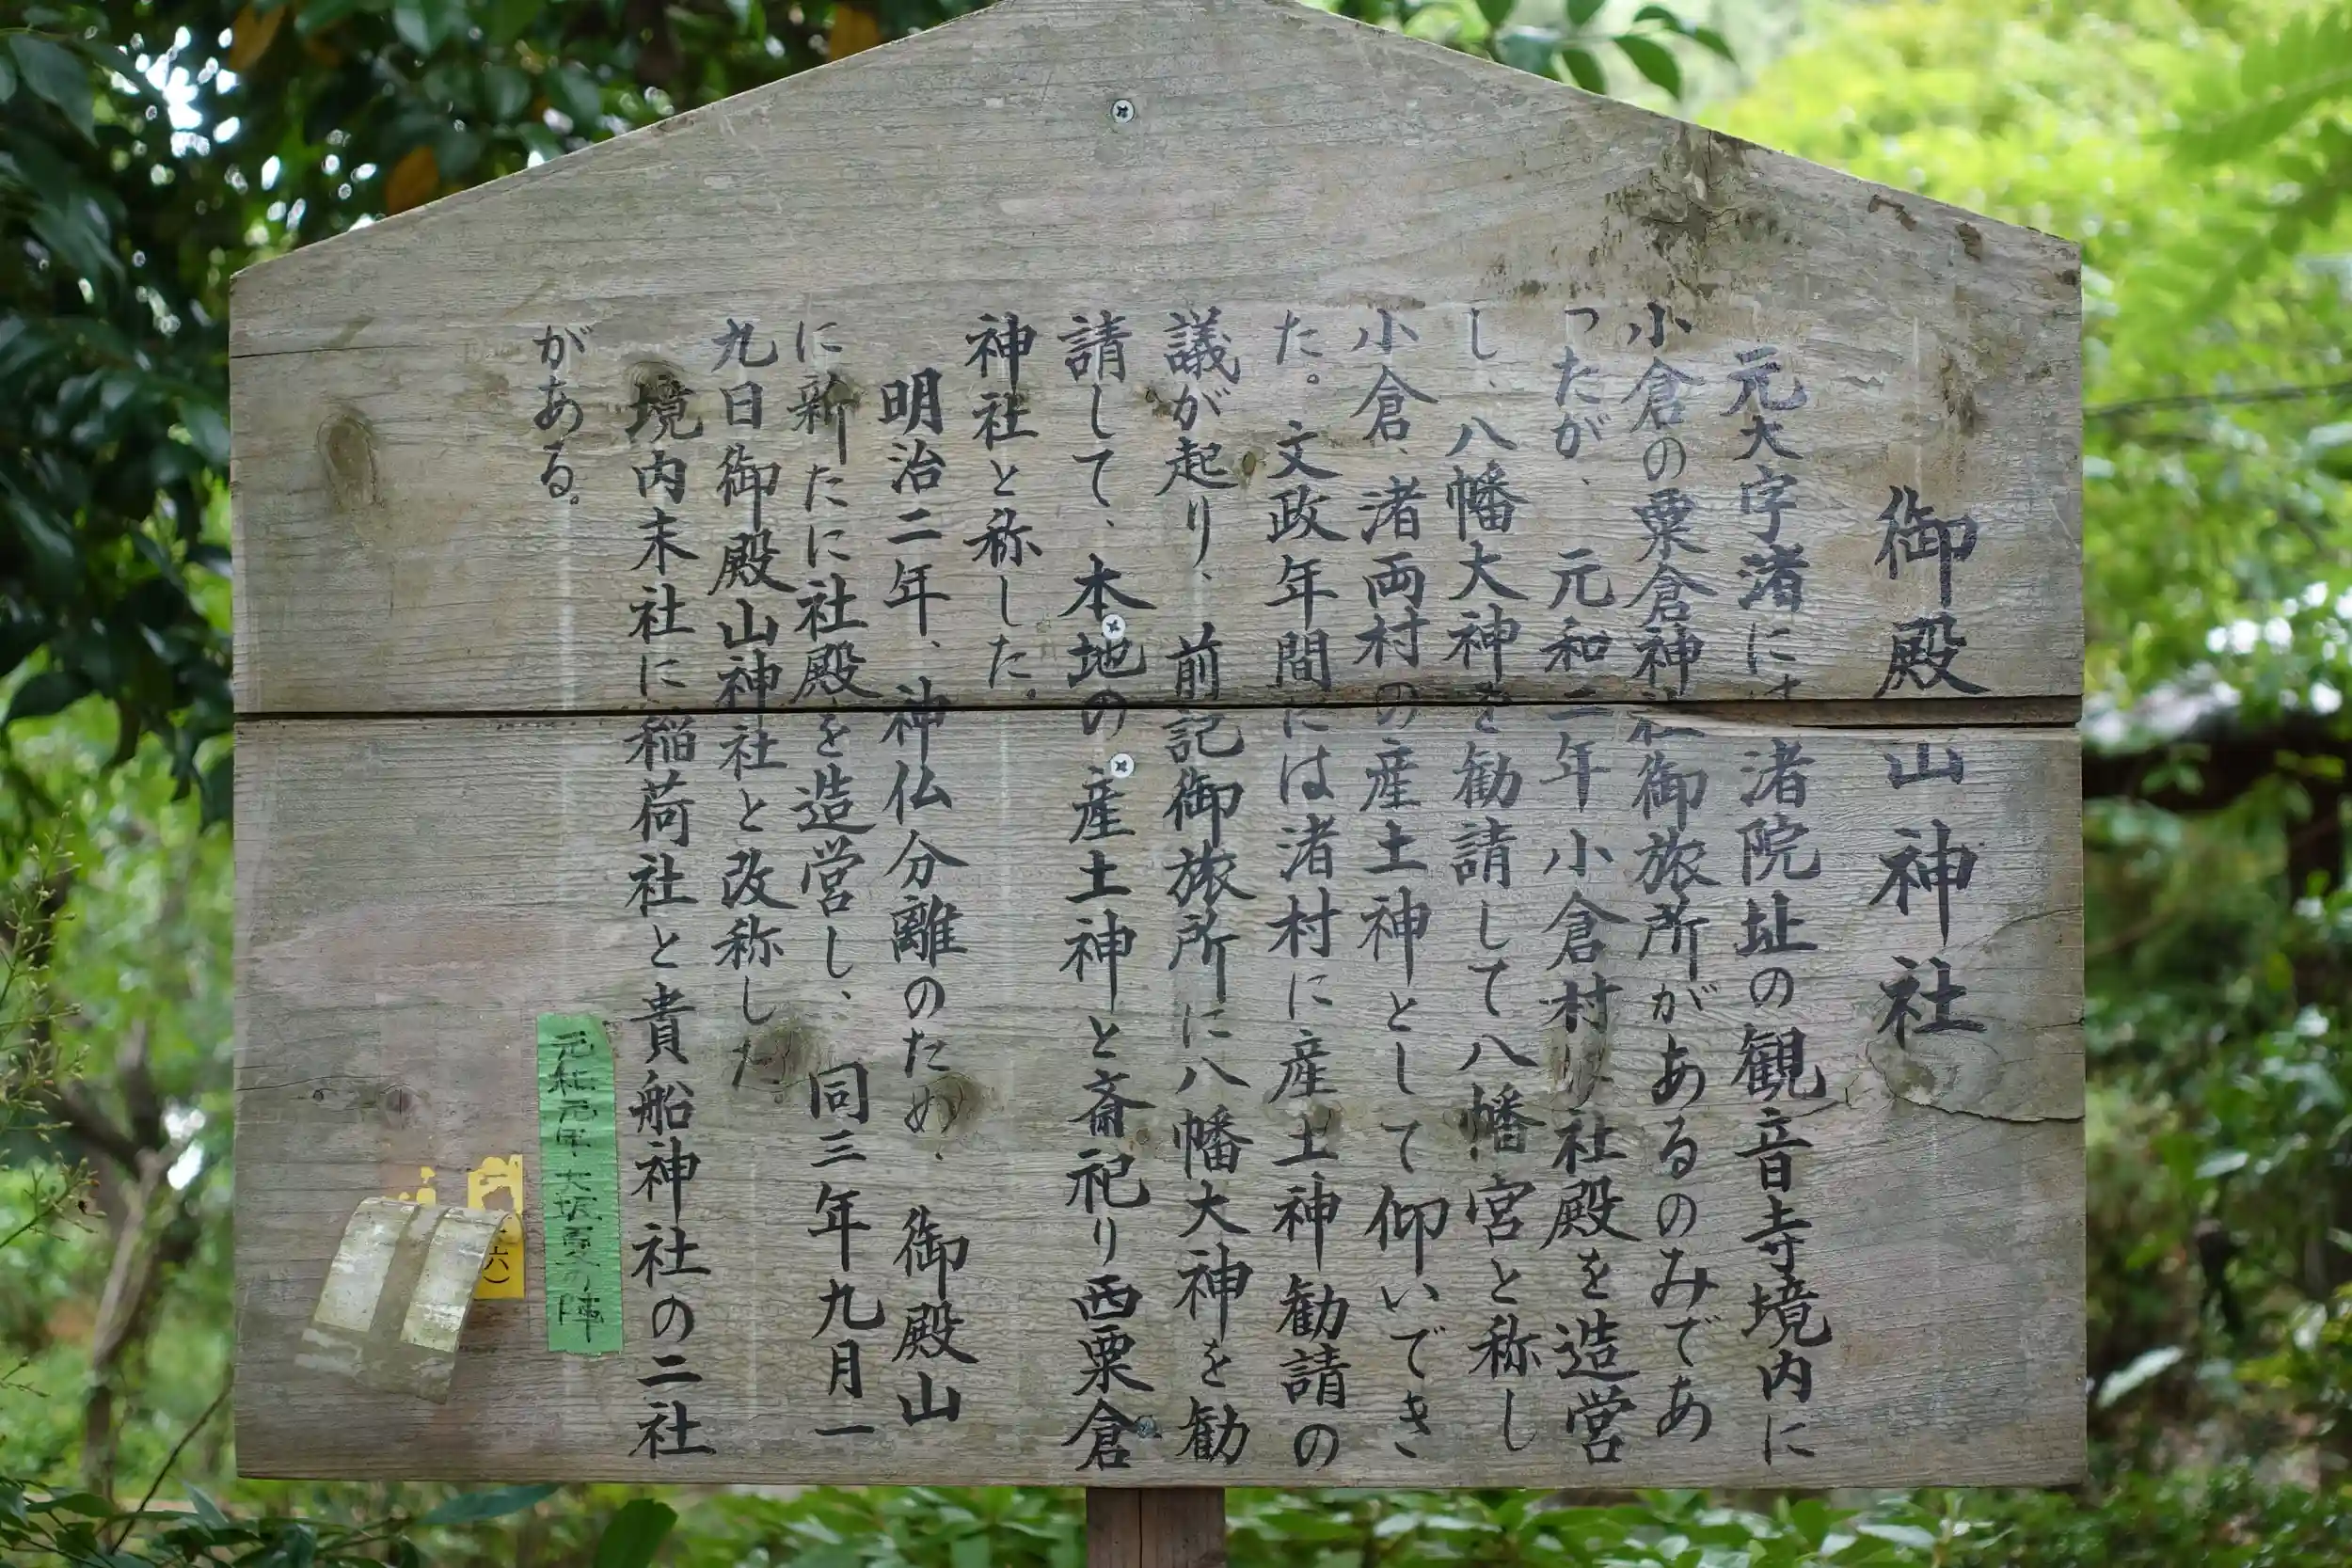 御殿山神社
元大字渚には渚院址の観音寺境内に
小倉の粟倉神社御旅所があるのみであ
ったが、元和二年小倉村は社殿を造営
し、八幡大神を勧請して八幡宮と称し
小倉、渚両村の産土神として仰いでき
た。文政年間には渚村に産土神勧請の
議が起り、前記御旅所に八幡大神を勧
請して、本地の産土神と斎祀り西粟倉
神社と称した。
明治二年、神仏分離のため、御殿山
に新たに社殿を造営し、同三年九月一
九日御殿山神社と改称した。
境内末社に稲荷社と貴船神社の二社
がある。
元和元年、大坂夏の陣
六）